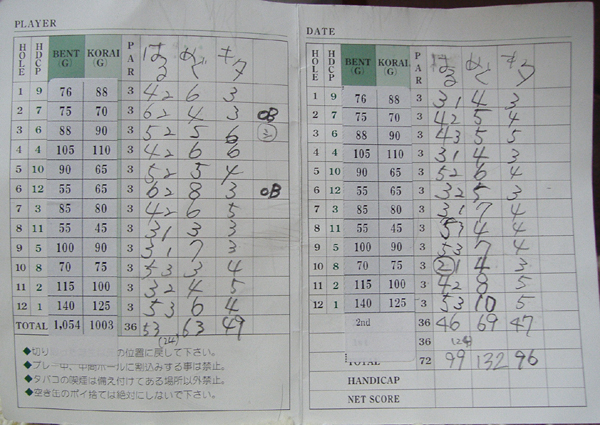 PLAYER
HOLE HDCP BENT (G) KORAI (G) PAR はる めぐ キヌ
1 9 76 88 3 42 6 3
2 7 75 70 3 62 4 3 OB
3 6 88 90 3 52 5 6 3
4 4 105 110 3 42 6 6
5 10 90 65 3 52 5 4
6 12 55 65 3 62 8 3 OB
7 3 85 80 3 42 6 5
8 11 55 45 3 31 3 3
9 5 100 90 3 31 7 3
10 8 70 75 3 53 3 4
11 2 115 100 3 32 4 5
12 1 140 125 3 53 6 4
TOTAL 1,054 1003 36 53 63 49
(24)
の位置に戻して下さい。
◆プレー中、中間ホールに割込みする事は禁止。
◆タバコの喫煙は備え付けてある場所以外禁止。
◆空き缶のポイ捨ては絶対にしないで下さい。
DATE
HOLE HDCP BENT (G) KORAI (G) PAR はる めぐ キヌ
1 9 76 88 3 31 4 3
2 7 75 70 3 42 5 4
3 6 88 90 3 43 5 5
4 4 105 110 3 31 4 3
5 10 90 65 3 52 6 4
6 12 55 65 3 32 5 3
7 3 85 80 3 31 7 4
8 11 55 45 3 4 4
9 5 100 90 3 53 7 4
10 8 70 75 3 21 4 3
11 2 115 100 3 42 8 5
12 1 140 125 3 53 10 5
2nd 36 46 69 47
36
TOTAL 72 99 132 96
HANDICAP
NET SCORE